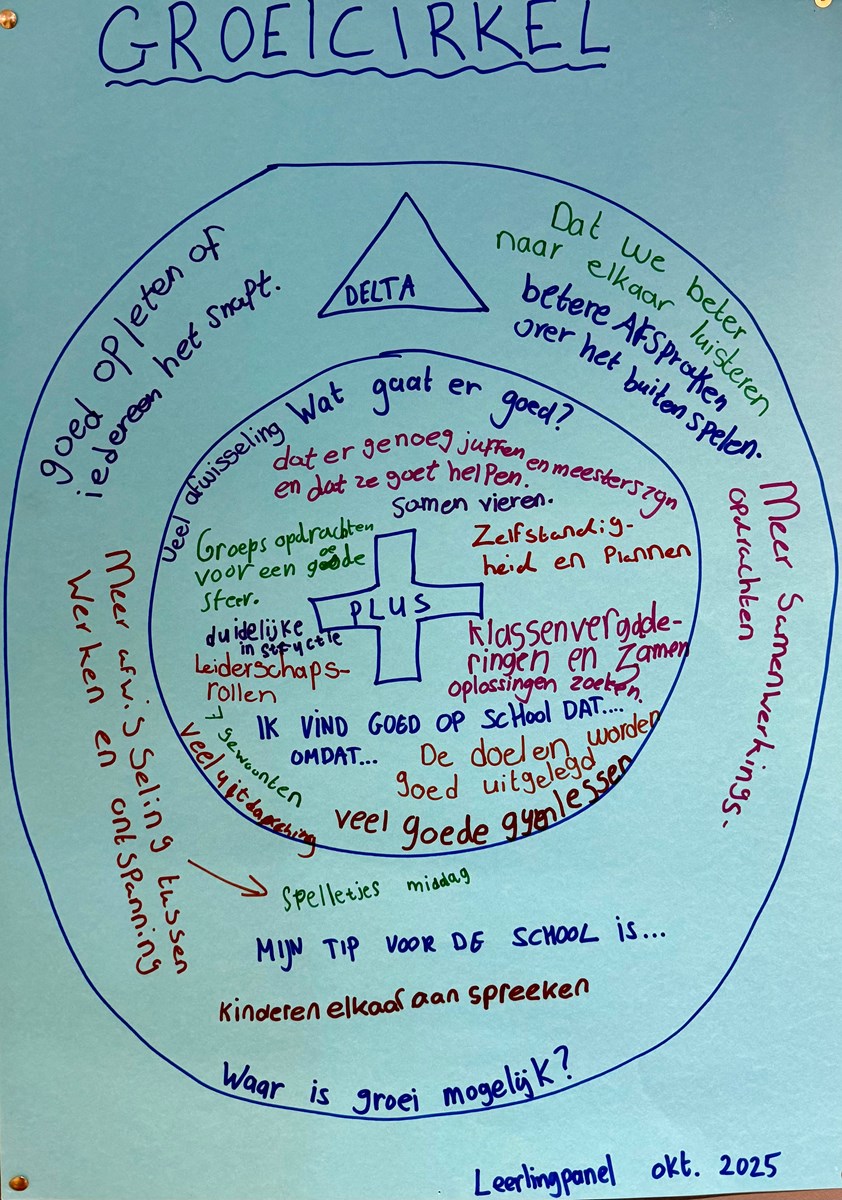 GROEICIRKEL
DELTA
goed opleten of
iedereen het snapt.
Dat we beter
naar elkaar luisteren
betere AfSpraken
over het buiten spelen.
Meer Samenwerkings.
opdrachten
Meer afwisseling tussen
Werken en ontspanning
Spelletjes middag
MIJN TIP VOOR DE SCHOOL is...
Kinderen elkaar aan spreeken
Waar is groei mogelijk?
Wat gaat er goed?
Veel afwisseling
dat er genoeg juffen en meesters zijn
en dat ze goet helpen.
Samen vieren.
Groeps opdrachten
voor een goede
sfeer.
Zelfstandig-
heid en Plannen
PLUS
duidelijke
instructie
Leiderschaps-
rollen
klassenvergade-
ringen en Zamen
oplossingen zoeken.
IK VIND GOED OP SCHOOL DAT....
OMDAT...
7 gewoonten
veel uitdageing
De doelen worden
goed uitgelegd
veel goede gymlessen
Leerlingpanel okt. 2025